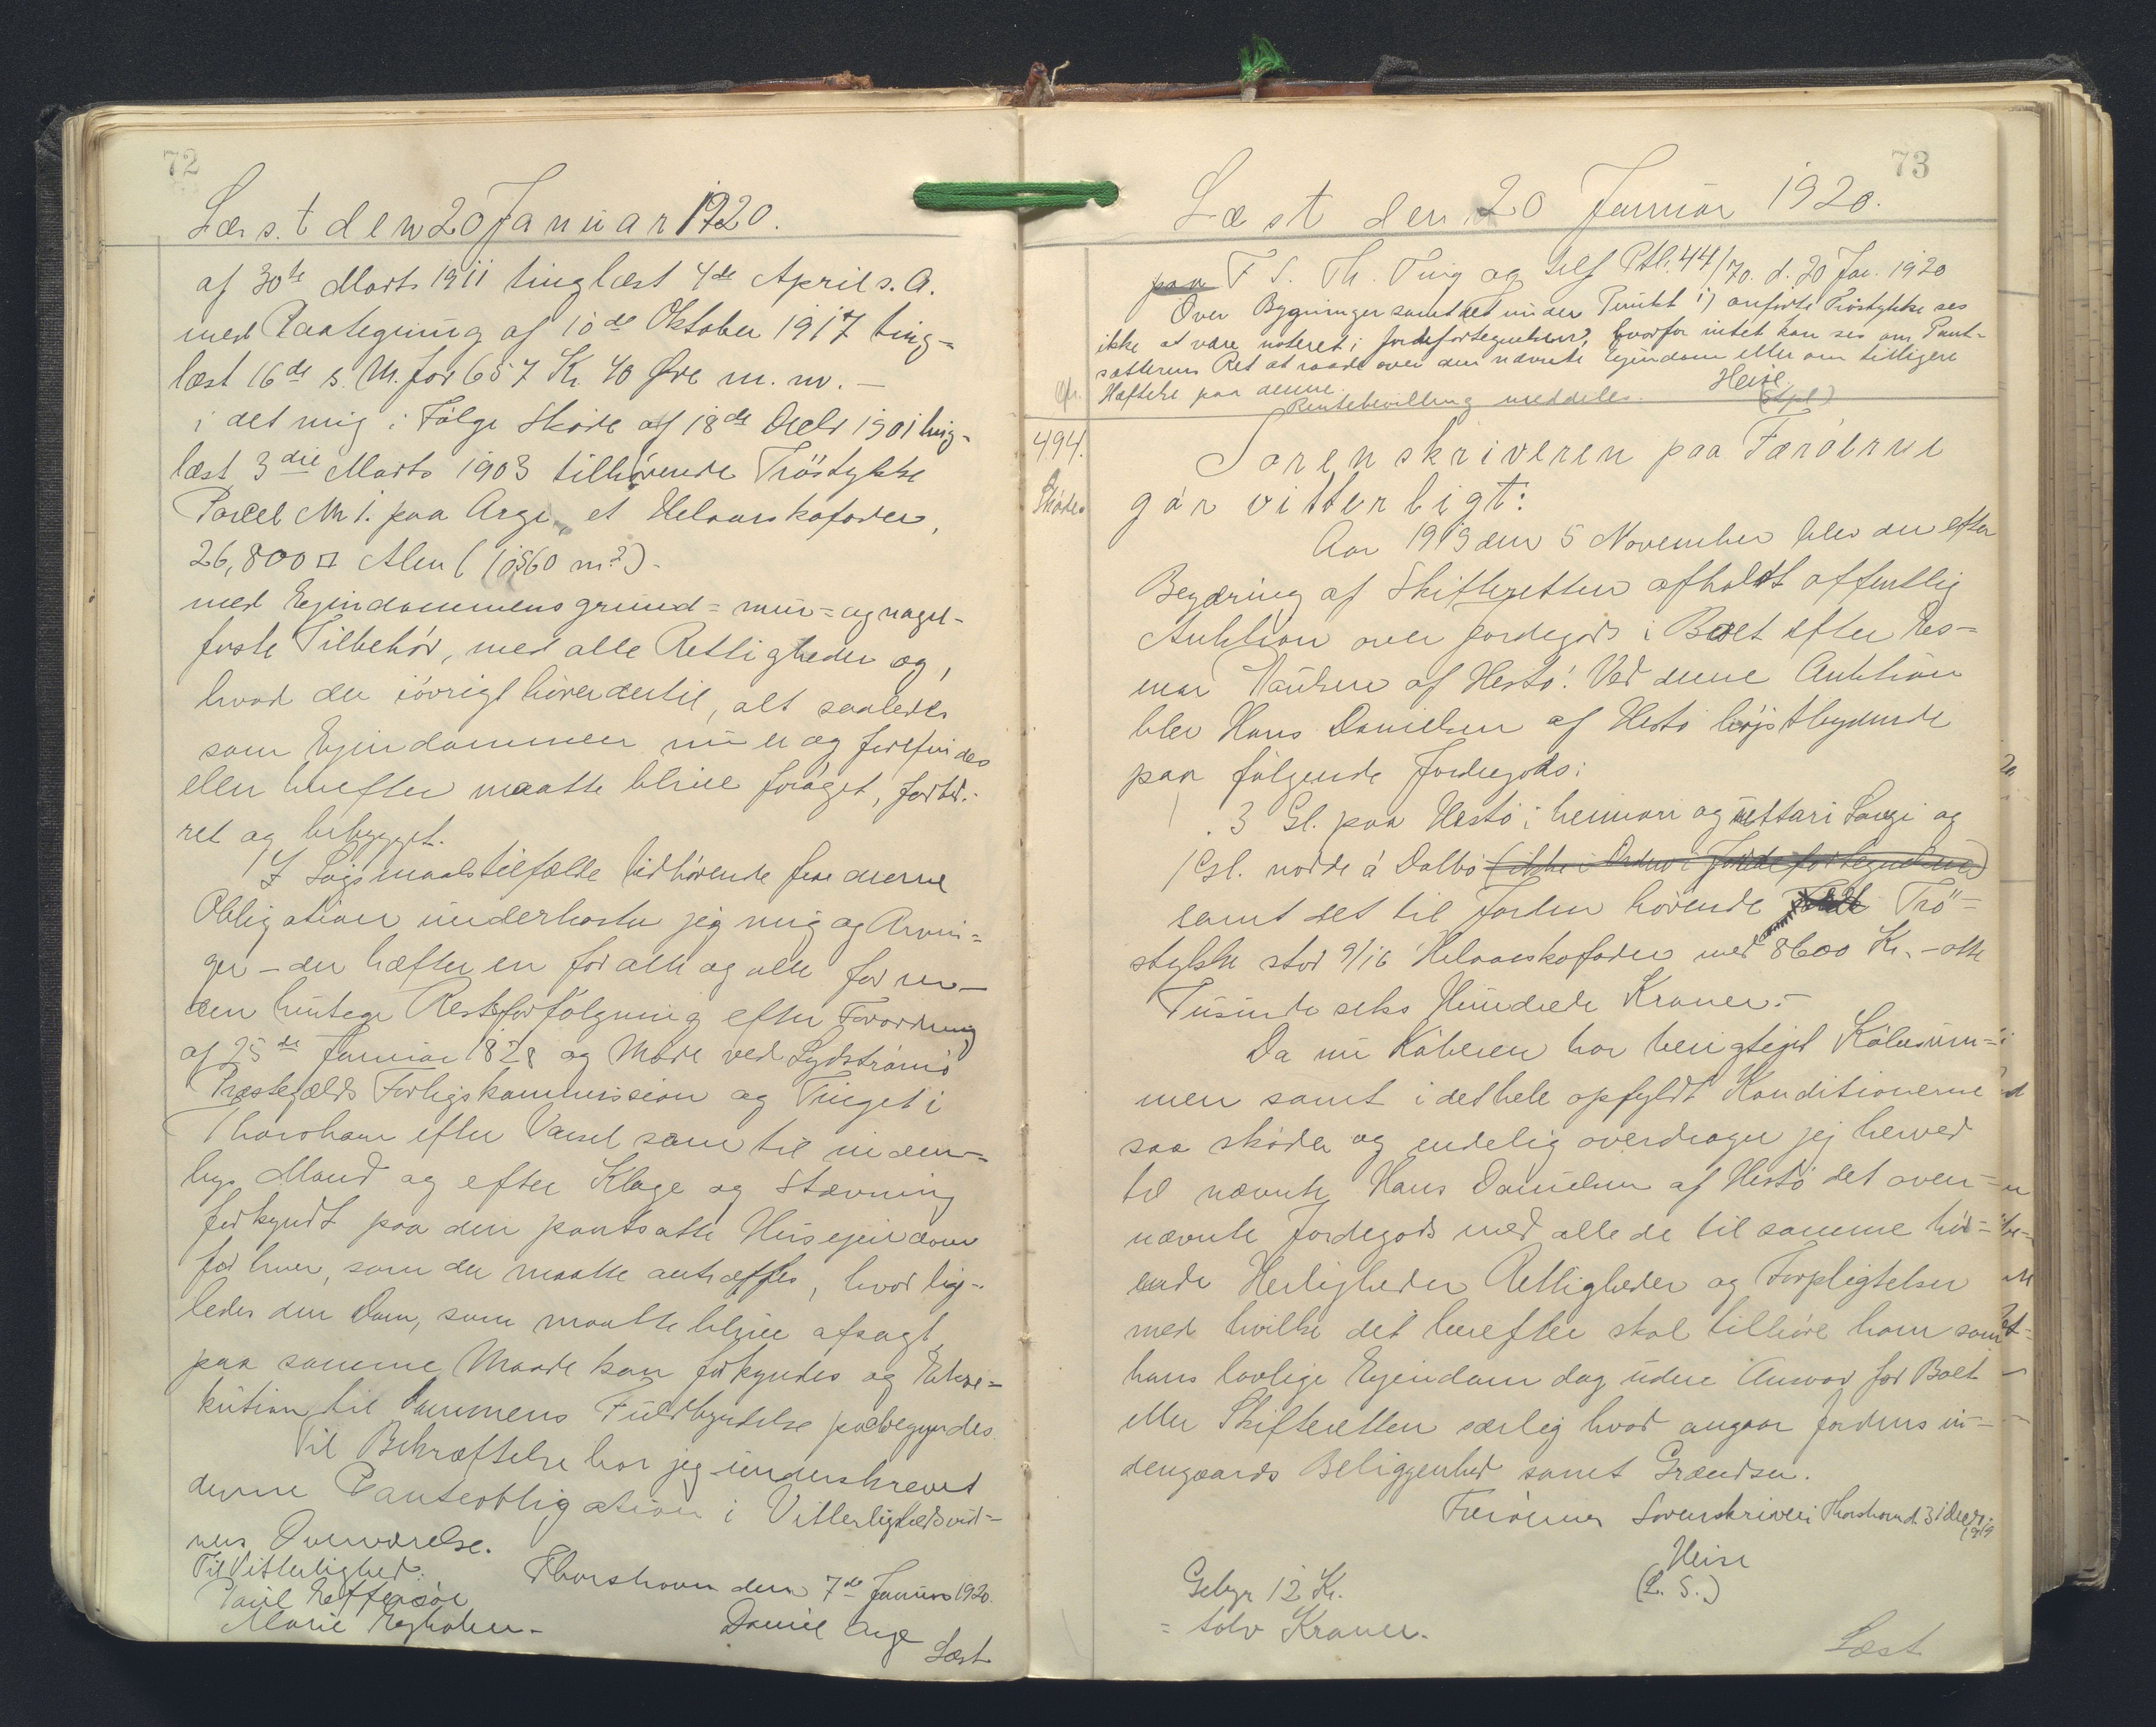 72
Læst den 20 Januar 1920.
af 30te Marts 1911 tinglæst 4de April s. A.
med Paategning af 10de Oktober 1917 ting-
læst 16de s. M. for 657 Kr 40 Øre m. m. —
i det mig i Følge Skøde af 18de Decbr 1901 ting-
læst 3die Marts 1903 tilhørende Tröstykke
Parcel № 1. paa Arge, et Helaarskofoder,
26,800 □ Alen (10560 m²).
med Ejendommens grund= mur= og nagel-
faste Tilbehör, med alle Rettigheder og,
hvad der iövrigt hörer dertil, alt saaledes
som Ejendommen nu er og forefindes
eller herefter maatte blive foröget, forbed-
ret og bebygget.
I Sögsmaalstilfælde vedhörende fra denne
Obligation underkaster jeg mig og Arvin=
ger – der hæfter en for alle og alle for en –
den hurtige Retsforfölgning efter Forordning
af 25de Januar 1828 og Möde ved Sydströmö
Præstegjælds Forligskommission og Tinget i
Thorshavn efter Varsel som til inden=
bys Mand og efter Klage og Stævning
forkyndt paa den pantsatte Husejendom
for hver, som der maatte antræffes, hvor lige-
ledes den Dom, som maatte blive afsagt,
paa samme Maade kan forkyndes og Ekse=
kution til Dommens Fuldbyrdelse paabegyndes.
Til Bekræftelse har jeg underskrevet
denne Panteobligation i Vitterlighedsvid=
ners Overværelse.
Thorshavn den 7de Januar 1920.
Til Vitterlighed:
Daniel Arge
Marie
Læst
73
Læst den 20 Januar 1920.
paa F S. Th. Ting og Ptl. 44/70. d. 20 Jan. 1920
Over Bygninger samt det under Punkt 1) anförte Tröstykke ses
ikke at være noteret i Jordefortegnelsen, hvorfor intet kan ses om Pant-
sætterens Ret at raade over den nævnte Ejendom eller om tidligere
Hæftelse paa denne.
Heise
Rentebevilling meddeles.
494.
Skøde.
Sorenskriveren paa Færöerne
gör vitterligt:
Aar 1919 den 5 November blev der efter
Begæring af Skifteretten afholdt offentlig
Auktion over Jordegods i Boet efter Ras=
mus Paulsen af Hestö. Ved denne Auktion
blev Hans Danielsen af Hestö höjstbydende
paa fölgende Jordegods:
3 Gl. paa Hestö i heimari og nettari Langi og
1 Gl. nordr á Dalbö (ikke i Jordefortegnelsen)
samt det til Jorden hörende Trö=
stykke stor 9/16 Helaarskofoder med 8600 Kr. – otte
Tusinde seks Hundrede Kroner. –
Da nu Köberen har berigtiget Köbesum=
men samt i det hele opfyldt Konditionerne
saa sköder og endelig overdrager jeg herved
til nævnte Hans Danielsen af Hestö det oven=
nævnte Jordegods med alle de til samme hör=
ende Herligheder Rettigheder og Forpligtelser
med hvilke det herefter skal tilhöre ham som
hans lovlige Ejendom dog uden Ansvar for Boet
eller Skifteretten særlig hvad angaar Jordens in-
dengaards Beliggenhed samt Grændser.
Færöernes Sorenskriveri Thorshavn d. 31 Decbr. 1919
Heise
(L. S.)
Gebyr 12 Kr.
= tolv Kroner.
Læst